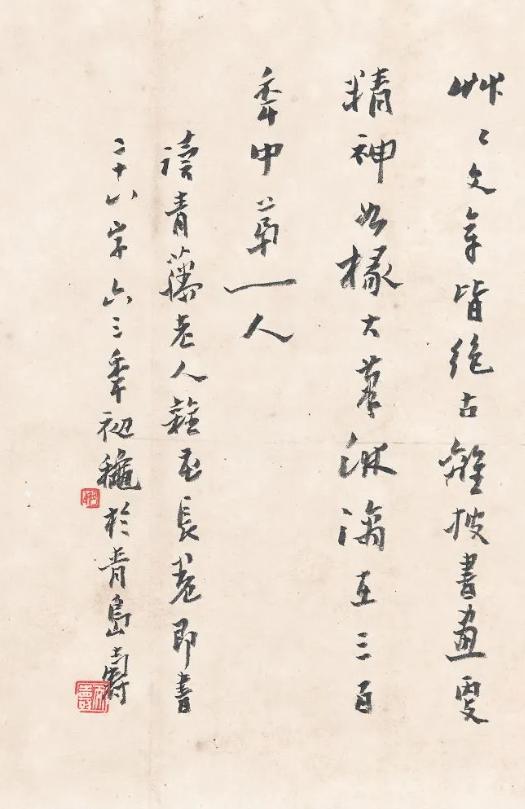 艸〻文章皆絶古離披書畫更
精神如椽大筆淋漓在三百
秊中第一人
讀青藤老人雜畫長卷即書
二十八字六三秊初龝於青島壽